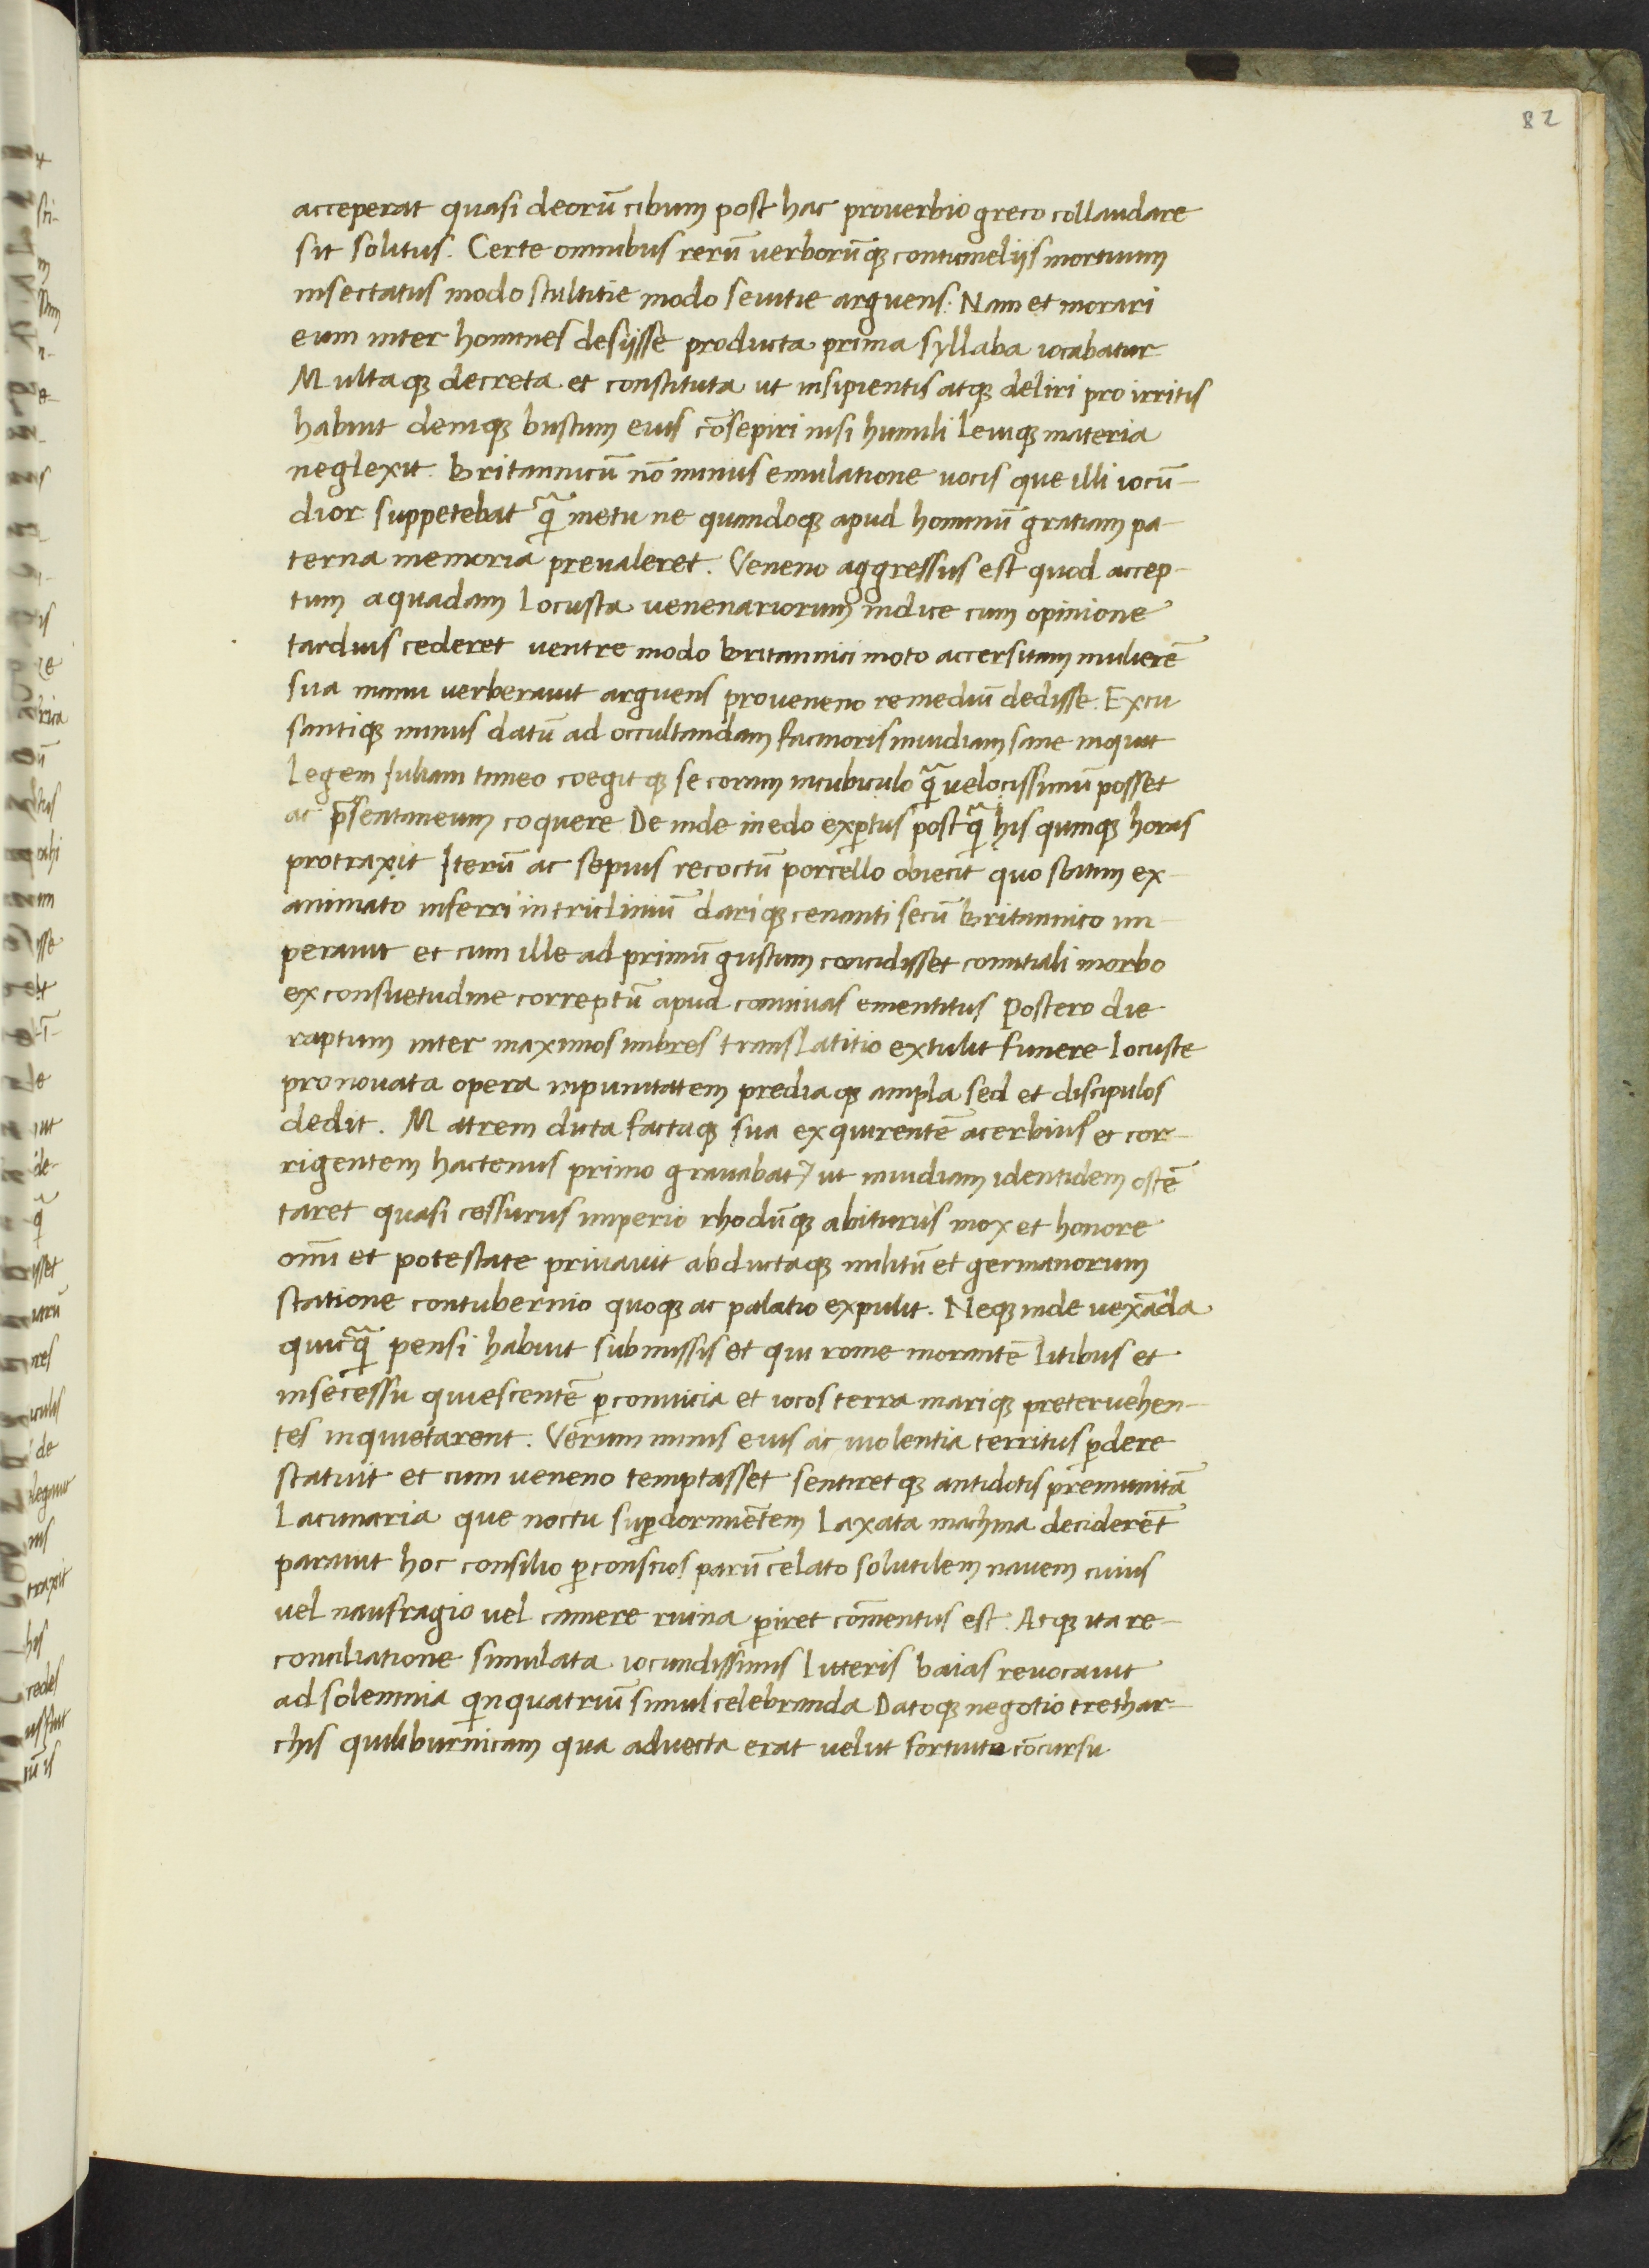 82
acceperat quasi deorū cibum post hac proverbio greco collaudare
sit solitus. Certe omnibus rerū verborūq; contumeliis mortuum
insectatus modo stultitie modo sevitie arguens. Nam et morari
eum inter homines desiisse producta prima syllaba iocabatur
Multaq; decreta et constituta ut insipientis atq; deliri pro irritis
habuit deniq; bustum eius cōsepiri nisi humili leviq; materia
neglexit. Britannicū nō minus emulatione vocis que illi iocū-
dior suppetebat q̄ metu ne quandoq; apud hominū gratiam pa-
terna memoria prevaleret. Veneno aggressus est quod accep-
tum a quadam Locusta venenariorum indice cum opinione
tardius cederet ventre modo britannici moto accersitam mulierē
sua manu verberavit arguens pro veneno remediū dedisse. Excu
santiq; minus datū ad occultandam facinoris invidiam sane inquit
Legem Iuliam timeo coegitq; se coram in cubiculo q̄ velocissimū posset
ac p̄sentaneum coquere Deinde in edo expertus postq̄ his quinq; horas
protraxit Iterū ac sepius recoctū porcello obiecit quo statim ex-
animato inferri in tricliniū dariq; cenanti secū britannico im-
peravit et cum ille ad primū gustum concidisset comitiali morbo
ex consuetudine correptū apud convivas ementitus Postero die
raptum inter maximos imbres translatitio extulit funere Locuste
pro novata opera inpunitatem prediaq; ampla sed et discipulos
dedit. Matrem dicta factaq; sua exquirentē acerbius et cor-
rigentem hactenus primo gravabat᷑ ut invidiam identidem ostē
taret quasi cessurus imperio rhodūq; abiturus mox et honore
omī et potestate privavit abductaq; militū et germanorum
statione contubernio quoq; ac palatio expulit. Neq; inde vexāda
quicq̄ pensi habuit submissis et qui rome morantē litibus et
in secessu quiescentē p̱ convicia et iocos terra mariq; pretervehen-
tes inquietarent. Verum minis eius ac violentia territus p̱dere
statuit et cum veneno temptasset sentiretq; antidotis premunitā
Lacunaria que noctu sup̱ dormiētem laxata machina deciderēt
paravit hoc consilio p̱ conscios parū celato solutilem navem cuius
vel naufragio vel camere ruina p̱iret cōmentus est. Atq; ita re-
conciliatione simulata iocundissimis litteris baias revocavit
ad solemnia q̇nquatriū simul celebranda Datoq; negotio trethar-
chis qui liburnicam qua advecta erat velut fortuito cōcursu